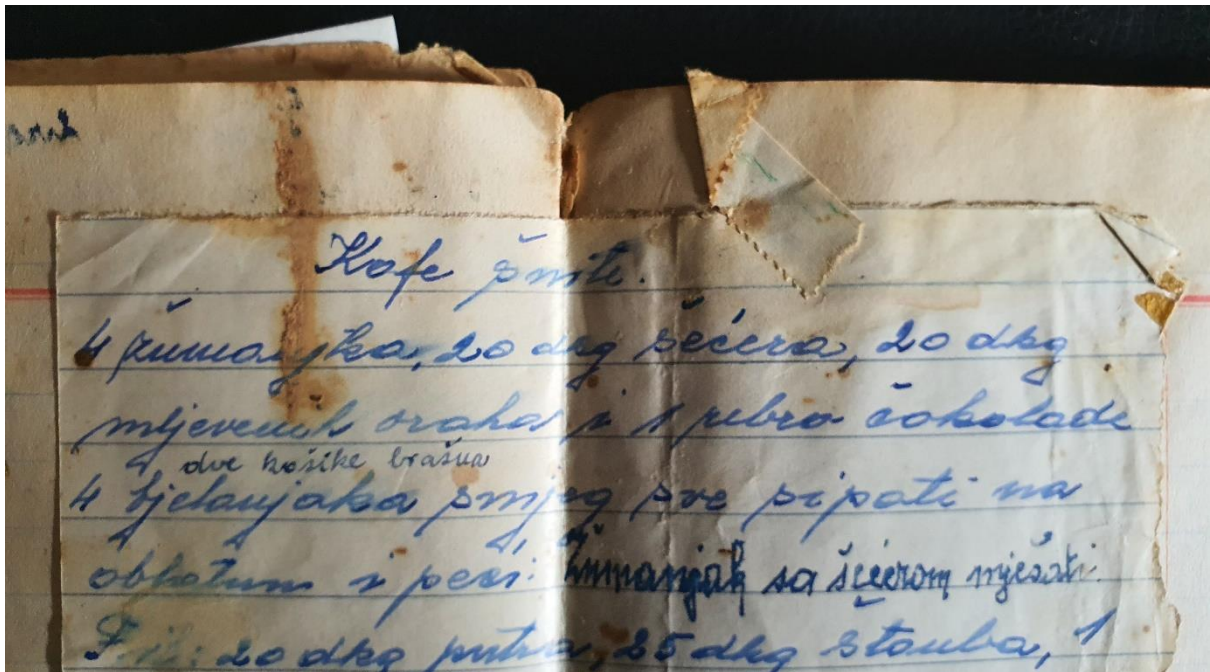 Kafe šnite.
4 žumanjka, 20 dkg šećera, 20 dkg
mljevenih oraha i 1 rebro čokolade
dve kašike brašna
4 bjelanjaka snjeg sve sipati na
oblatum i peći. žumanjak sa šećerom mješati.
Fil: 20 dkg putra, 25 dkg štauba, 1